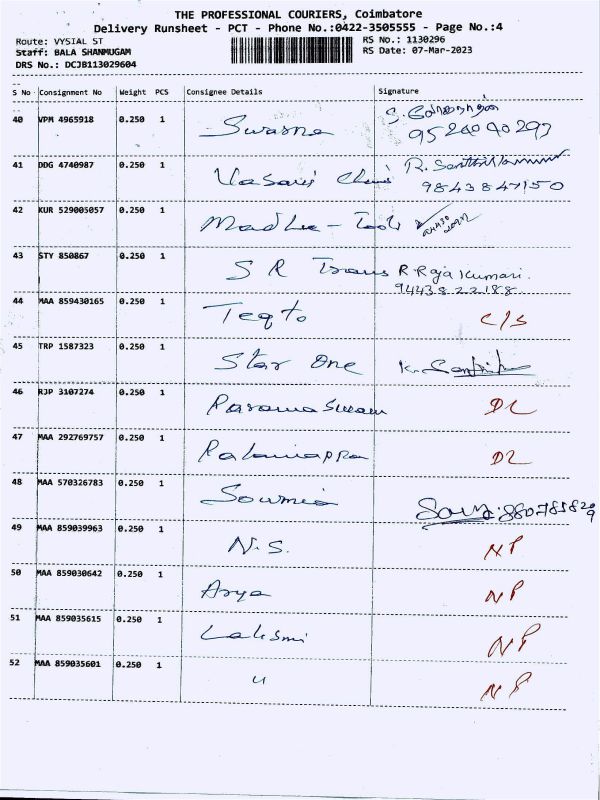 THE PROFESSIONAL COURIERS, Coimbatore
Delivery Runsheet - PCT - Phone No.:0422-3505555 - Page No.:4
Route: VYSIAL ST
RS No.: 1130296
Staff: BALA SHANMUGAM
RS Date: 07-Mar-2023
DRS No.: DCJB113029604
S No Consignment No Weight PCS Consignee Details Signature
40 VPM 4965918 0.250 1 Swasna
41 DDG 4740987 0.250 1 Vasavi R. Senthilkumar
9843847150
42 KUR 529005057 0.250 1 Madhu - Tools
43 STY 850867 0.250 1 S R Trans R Rajakumari.
94438 22188
44 MAA 859430165 0.250 1 Teqto C/S
45 TRP 1587323 0.250 1 Star One
46 RJP 3107274 0.250 1 DL
47 MAA 292769757 0.250 1 DL
48 MAA 570326783 0.250 1 Sowmia
49 MAA 859039963 0.250 1 N.S. NP
50 MAA 859030642 0.250 1 Arya NP
51 MAA 859035615 0.250 1 Laksmi NP
52 MAA 859035601 0.250 1 u NP